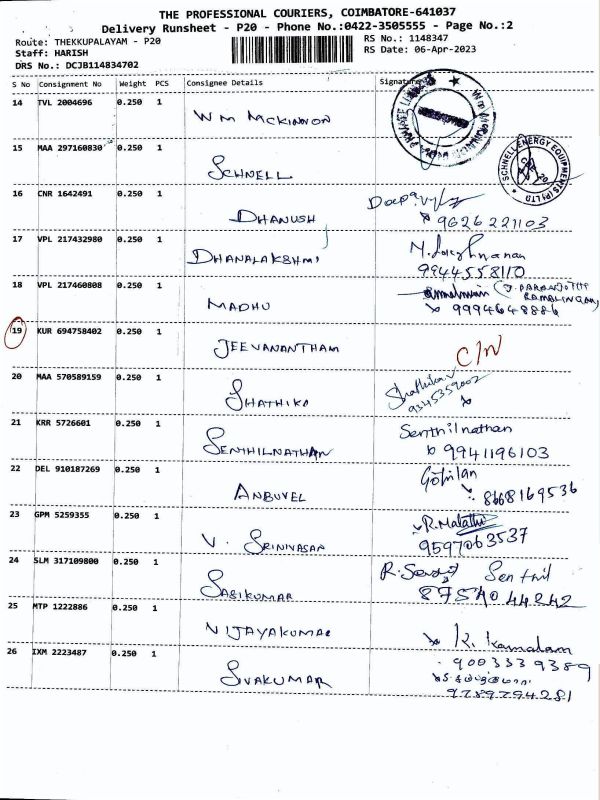 THE PROFESSIONAL COURIERS, COIMBATORE-641037
Delivery Runsheet - P20 - Phone No.:0422-3505555 - Page No.:2
Route: THEKKUPALAYAM - P20 RS No.: 1148347
Staff: HARISH RS Date: 06-Apr-2023
DRS No.: DCJB114834702
S No Consignment No Weight PCS Consignee Details Signature
14 TVL 2004696 0.250 1 WM MCKINNON
15 MAA 297160830 0.250 1 SCHNELL
SCHNELL ENERGY EQUIPMENTS (P) LTD
16 CNR 1642491 0.250 1 DHANUSH
9626221103
17 VPL 217432980 0.250 1 DHANALAKSHMI
9944558110
18 VPL 217460808 0.250 1 MADHU
9994648886
19 KUR 694758402 0.250 1 JEEVANANTHAM C/N
20 MAA 570589159 0.250 1 SHATHIKA Shathika V
9345359002
21 KRR 5726601 0.250 1 SENTHILNATHAN Senthilnathan
9941196103
22 DEL 910187269 0.250 1 ANBUVEL
8668169536
23 GPM 5259355 0.250 1 V. SRINIVASAN R. Malathi
9597063537
24 SLM 317109800 0.250 1 SASIKUMAR
8754044242
25 MTP 1222886 0.250 1 VIJAYAKUMAR K. Kamalam
9003339389
26 IXM 2223487 0.250 1 SIVAKUMAR
9789794281